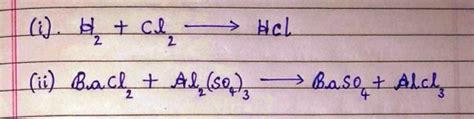 (i). H₂ + Cl₂ ⟶ HCl
(ii) BaCl₂ + Al₂(SO₄)₃ ⟶ BaSO₄ + AlCl₃